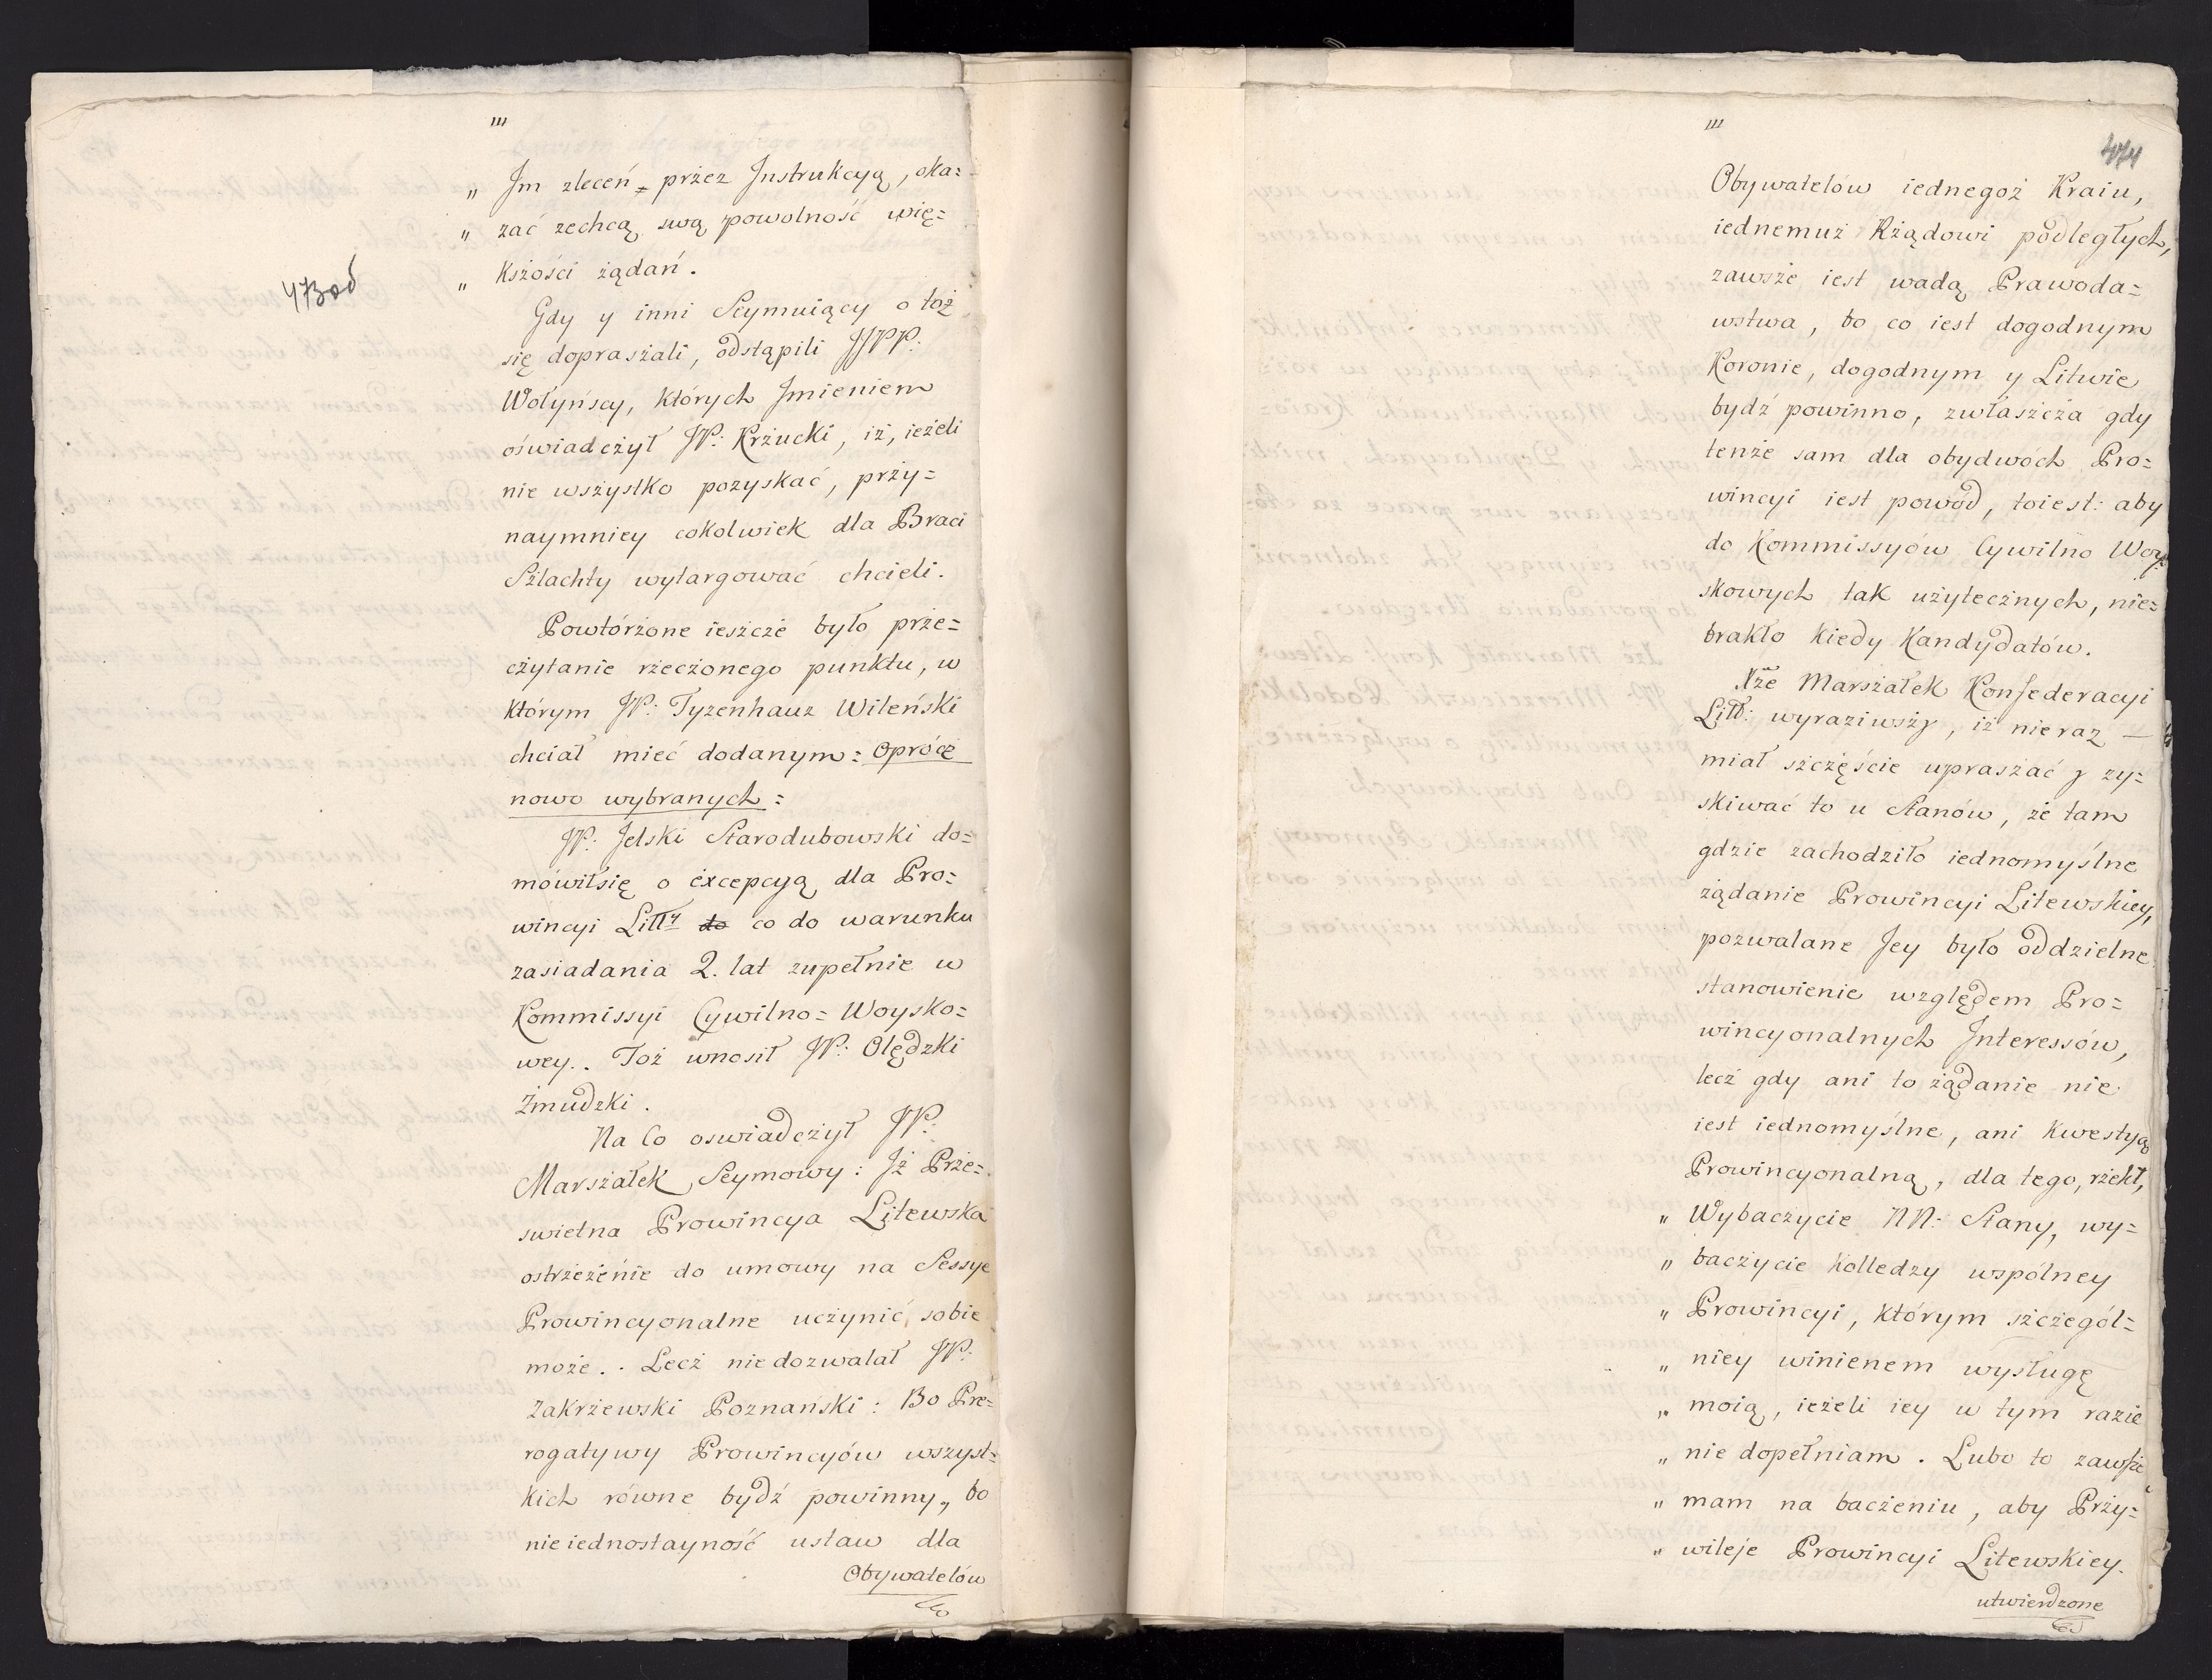 „ Jm zleceń przez Jnstrukcyą, oka=
„ zać zechcą swą powolność wię=
„ kszości żądań.
473 об
Gdy y inni Seymuiący o toż
się dopraszali, odstąpili JJPP:
Wołyńscy, których Jmieniem
oświadczył JP: Krzucki, iż, ieżeli
nie wszystko pozyskać, przy=
naymniey cokolwiek dla Braci
Szlachty wytargować chcieli.
Powtórzone ieszcze było prze=
czytanie rzeczonego punktu, w
którym JP: Tyzenhauz Wileński
chciał mieć dodanym: oprócz
nowo wybranych:
JP: Jelski Starodubowski do=
mówiłsię o excepcyą dla Pro=
wincyi Litty do co do warunku
zasiadania 2. lat zupełnie w
Kommissyi Cywilno= Woysko=
wey.. Toż wnosił JP: Olędzki
Żmudzki.
Na Co oswiadczył JP:
Marszałek Seymowy: Jż Prze=
swietna Prowincya Litewska
ostrzeżenie do umowy na Sessye
Prowincyonalne uczynić sobie
może.. Lecz niedozwalał JP:
Zakrzewski Poznański: Bo Pre=
rogatywy Prowincyów wszyst=
kich równe bydź powinny„ bo
nieiednostayność ustaw dla
Obywatelów
474
Obywatelów iednegoż Kraiu,
iednemuż Rządowi podległych,
zawsze iest wadą Prawoda=
wstwa, bo co iest dogodnym
Koronie, dogodnym y Litwie
bydź powinno, zwłaszcza gdy
tenże sam dla obydwóch Pro=
wincyi iest powód, toiest: aby
do Kommissyów Cywilno Woy=
skowych tak użytecznych, nie=
brakło kiedy Kandydatów.
Xże Marszałek Konfederacyi
Litt: wyraziwszy, iż nieraz —
miał szczęście upraszać y zy=
skiwać to u Stanów, że tam
gdzie zachodziło iednomyślne
żądanie Prowincyi Litewskiey,
pozwalane Jey było oddzielne
stanowienie względem Pro=
wincyonalnych Jnteressów,
lecz gdy ani to żądanie nie
iest iednomyślne, ani kwestyą
Prowincyonalną, dla tego, rzekł,
„ Wybaczycie NN: Stany, wy=
„ baczycie Kolledzy wspólney
„ Prowincyi, którym szczegól=
„ niey winienem wysługę
„ moią, ieżeli iey w tym razie
„ nie dopełniam. Lubo to zawsze
„ mam na baczeniu, aby Przy=
„ wileje Prowincyi Litewskiey
utwierdzone